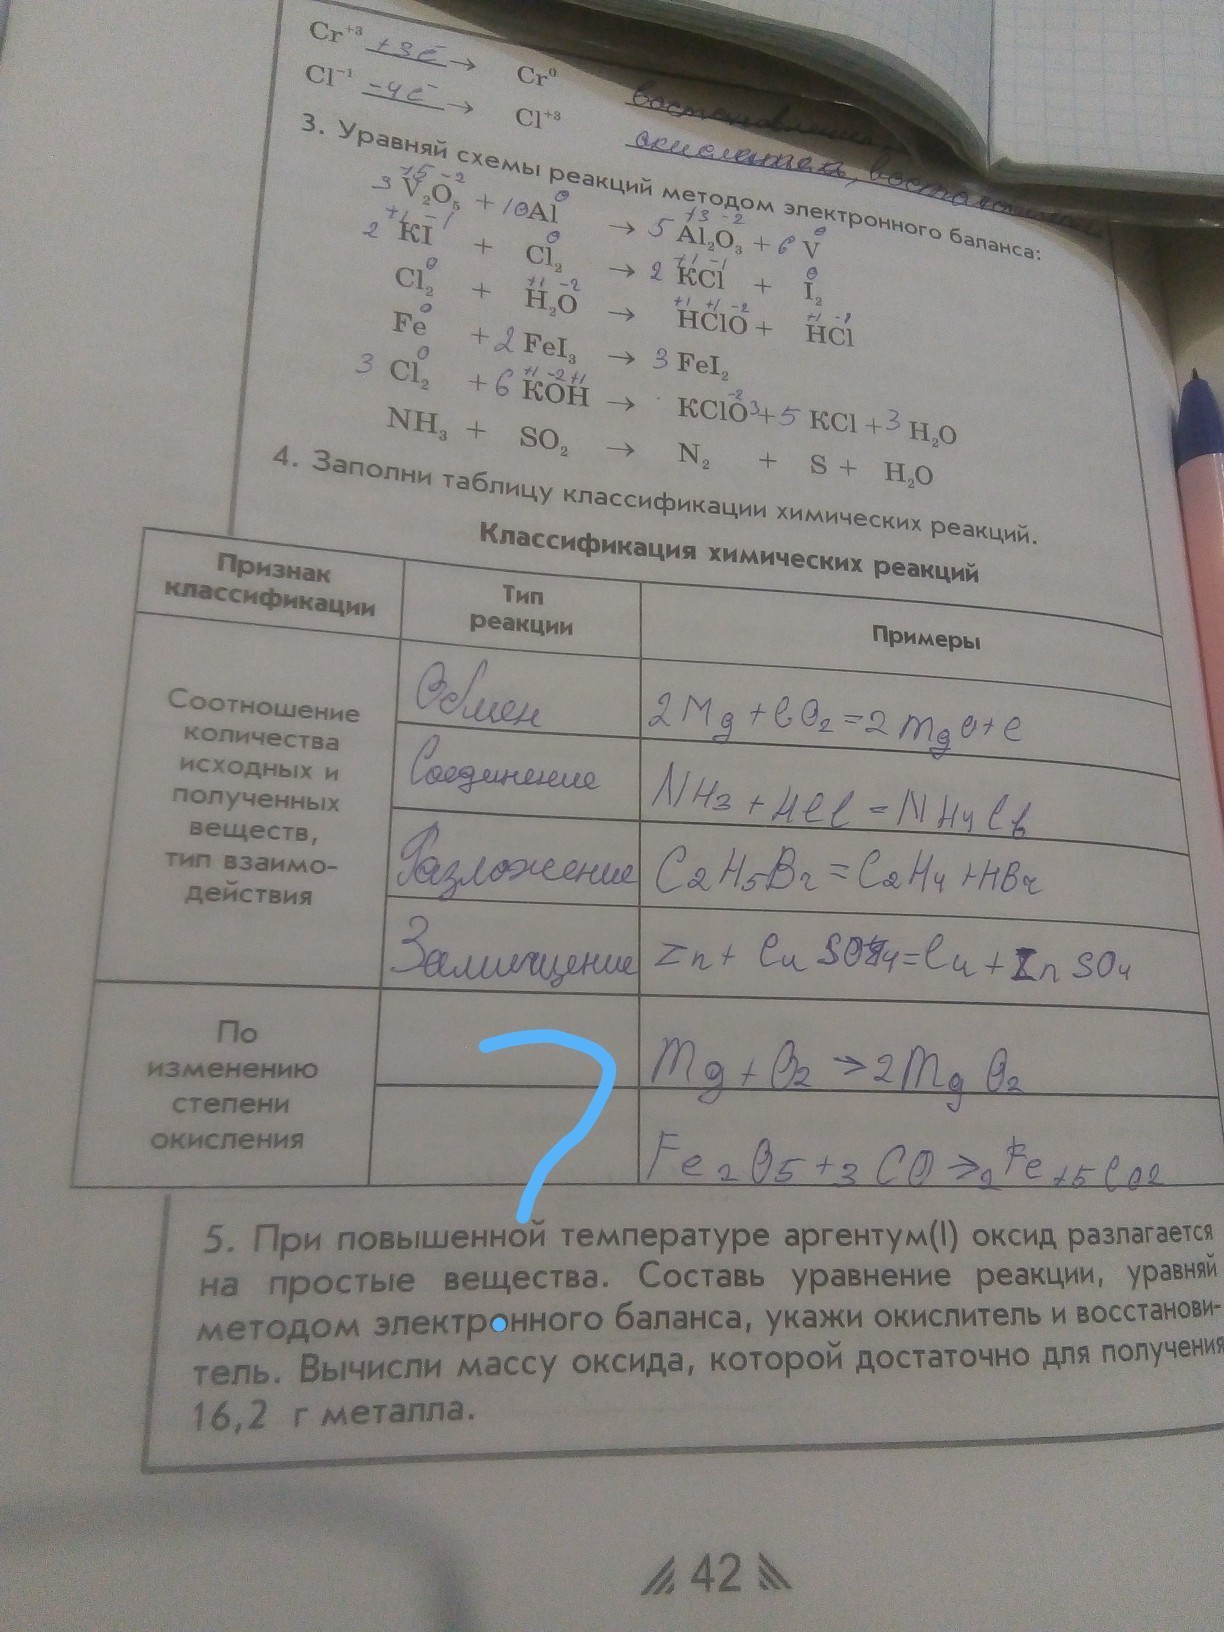 Cr⁺³ +3e̅ → Cr⁰
Cl⁻¹ -4e̅ → Cl⁺³
окислитель,
3. Уравняй схемы реакций методом электронного баланса:
+5 -2 0 +3 -2 0
3 V₂O₅ + 10Al → 5 Al₂O₃ + 6 V
+1 -1 0 +1 -1 0
2 KI + Cl₂ → 2 KCl + I₂
0 +1 -2 +1 +1 -2 +1 -1
Cl₂ + H₂O → HClO + HCl
0
Fe + 2 FeI₃ → 3 FeI₂
0 +1 -2 +1 -2
3 Cl₂ + 6 KOH → KClO3 + 5 KCl + 3 H₂O
NH₃ + SO₂ → N₂ + S + H₂O
4. Заполни таблицу классификации химических реакций.
Классификация химических реакций
Признак
классификации
Тип
реакции
Примеры
Соотношение
количества
исходных и
полученных
веществ,
тип взаимо-
действия
Обмен
2Mg + CO₂ = 2MgO + C
Соединение
NH₃ + HCl = NH₄Cl
Разложение
C₂H₅Br = C₂H₄ + HBr
Замещение
Zn + CuSO₄ = Cu + ZnSO₄
По
изменению
степени
окисления
?
Mg + O₂ → 2MgO₂
Fe₂O₅ + 3CO → 2Fe + 5CO₂
5. При повышенной температуре аргентум(I) оксид разлагается
на простые вещества. Составь уравнение реакции, уравняй
методом электронного баланса, укажи окислитель и восстанови-
тель. Вычисли массу оксида, которой достаточно для получения
16,2 г металла.
42